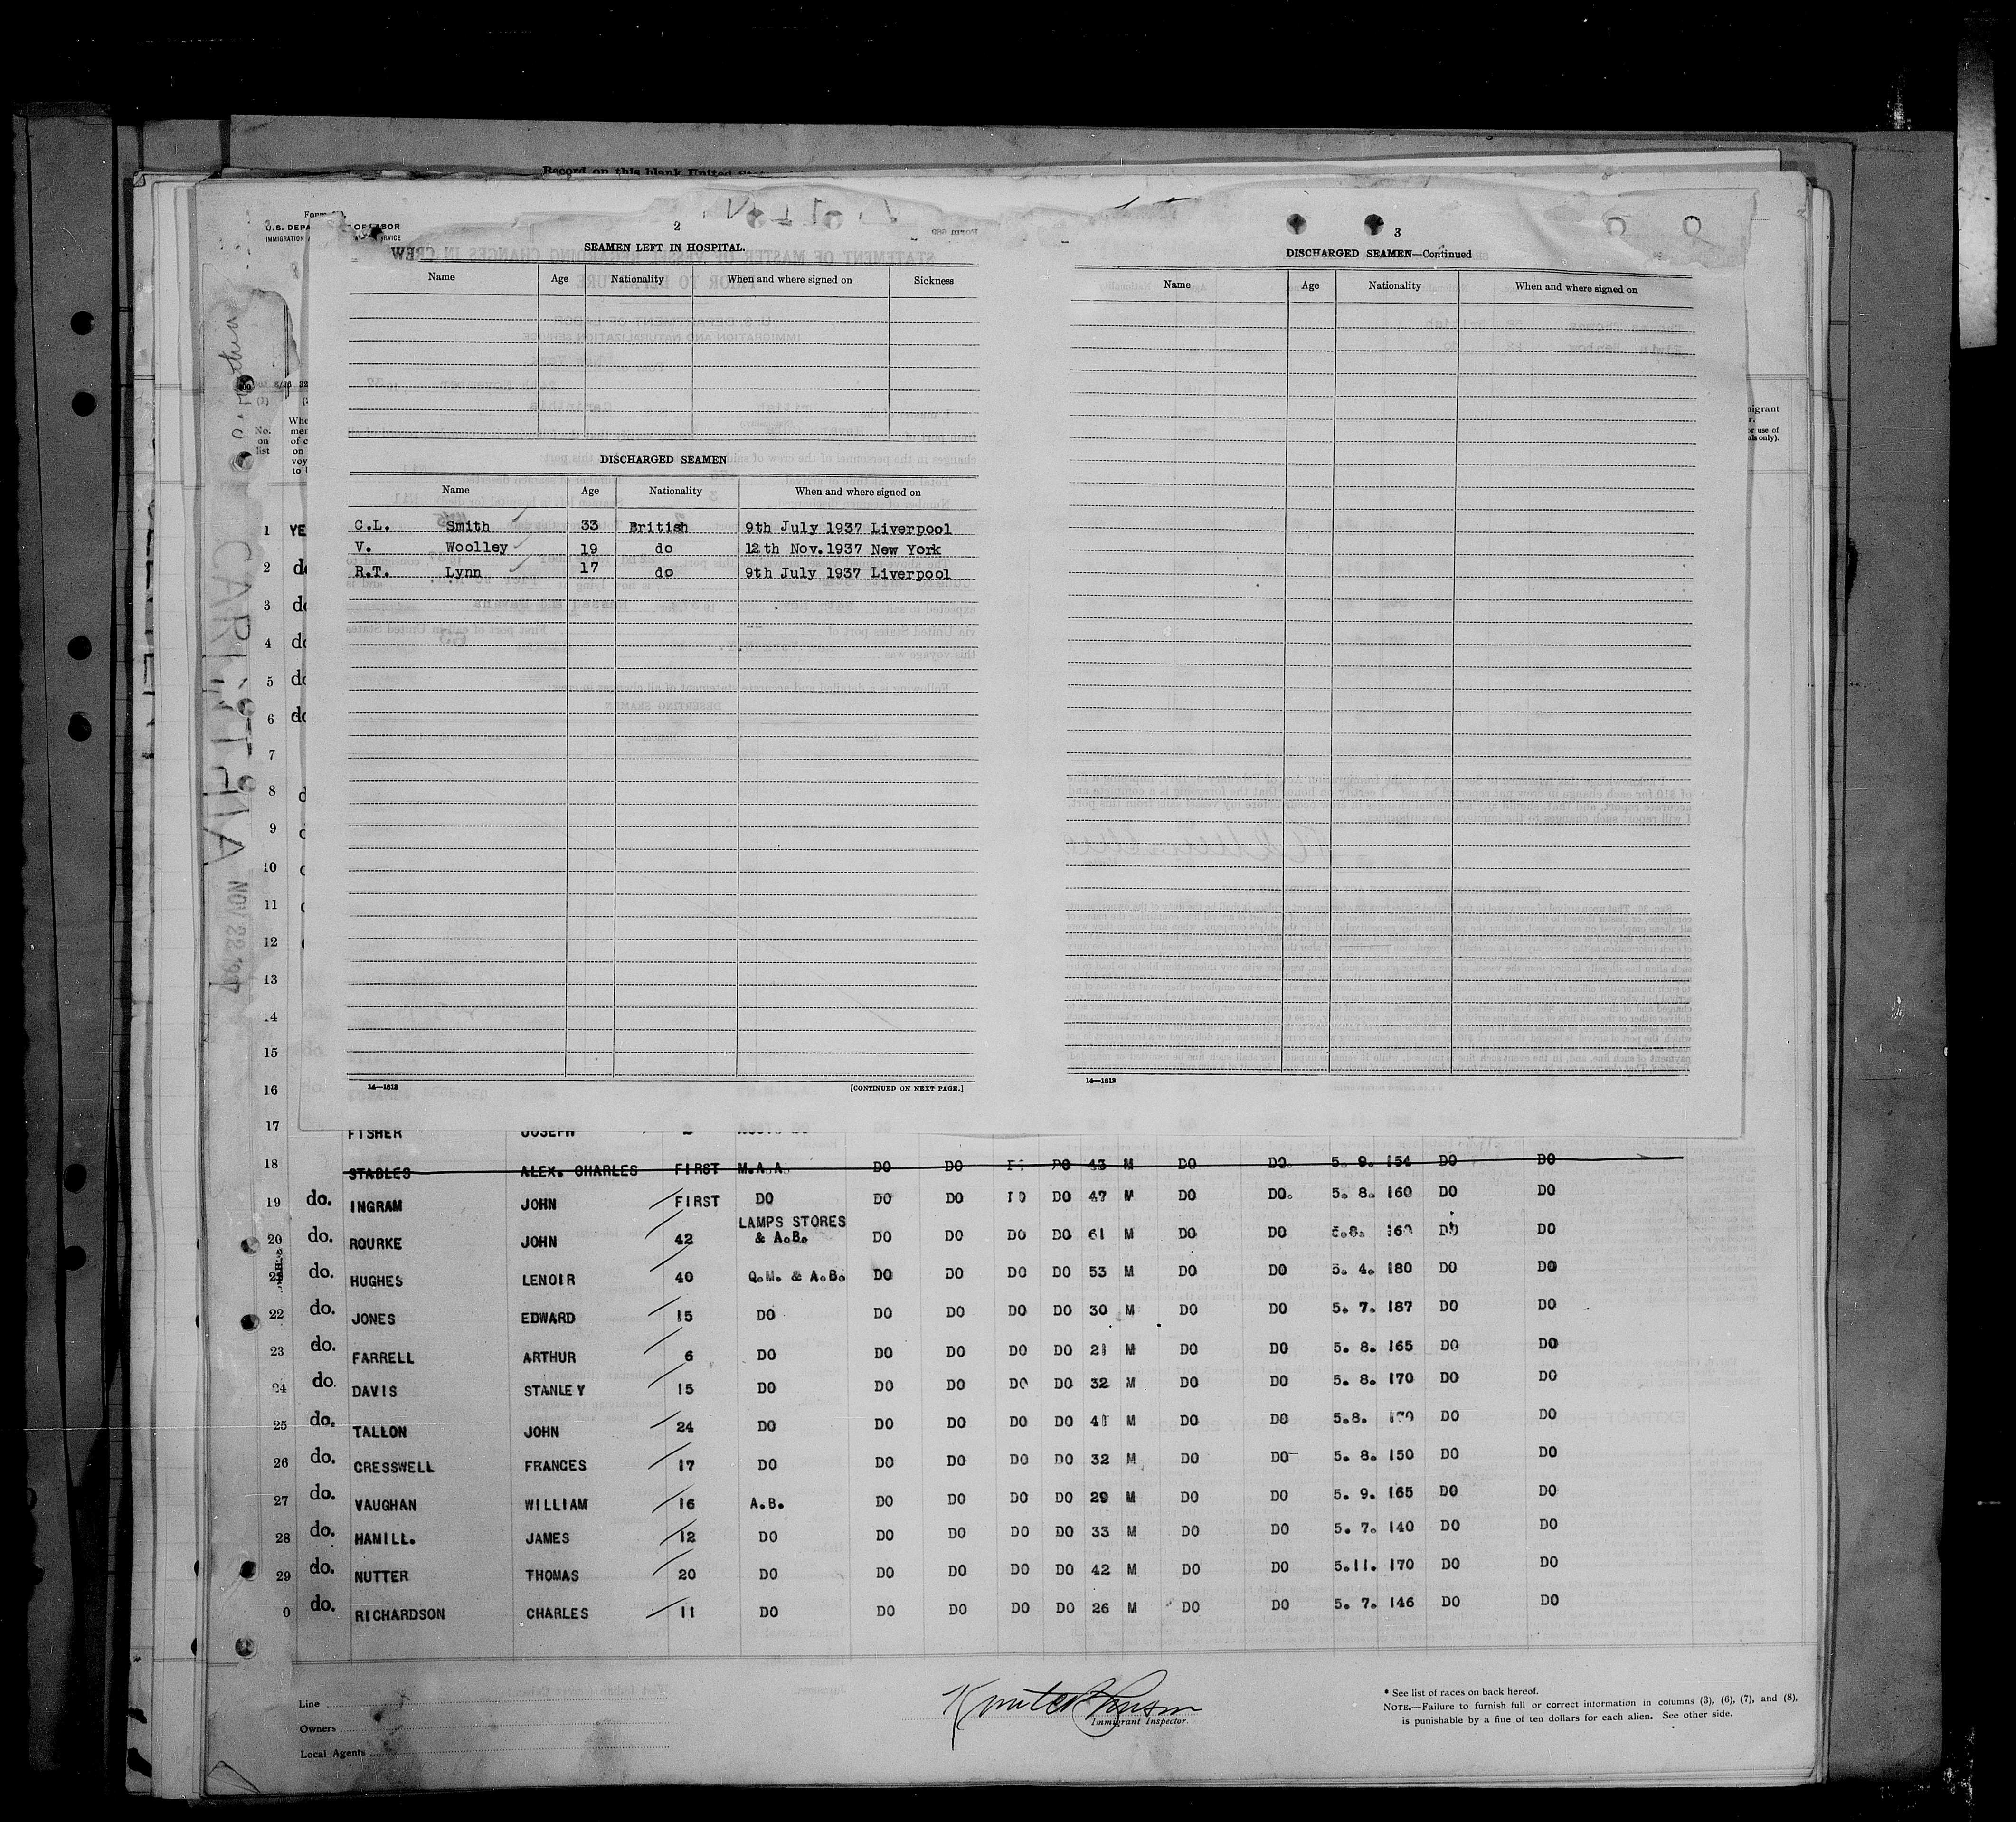 Record on this blank United
2
SEAMEN LEFT IN HOSPITAL.
Name Age Nationality When and where signed on Sickness
DISCHARGED SEAMEN
Name Age Nationality When and where signed on
C.L. Smith 33 British 9th July 1937 Liverpool
V. Woolley 19 do 12th Nov. 1937 New York
R.T. Lynn 17 do 9th July 1937 Liverpool
14—1613
[CONTINUED ON NEXT PAGE.]
3
DISCHARGED SEAMEN—Continued
Name Age Nationality When and where signed on
14—1613
U.S. DEPA OF LABOR
IMMIGRATION SERVICE
No. on list
CARINTHIA
NOV 22 1937
1 YE
2 do
3 do
4 do
5 do
6 do
7
8
9
10
11
12
13
14
15
16
17 FISHER JOSEPH
18 STABLES ALEX. CHARLES FIRST M.A.A. DO DO DO DO 43 M DO DO. 5. 9. 154 DO DO
19 do. INGRAM JOHN FIRST DO DO DO DO DO 47 M DO DO. 5. 8. 160 DO DO
20 do. ROURKE JOHN 42 LAMPS STORES & A.B. DO DO DO DO 61 M DO DO 5.8. 160 DO DO
21 do. HUGHES LENOIR 40 Q.M. & A.B. DO DO DO DO 53 M DO DO 5. 4. 180 DO DO
22 do. JONES EDWARD 15 DO DO DO DO DO 30 M DO DO 5. 7. 187 DO DO
23 do. FARRELL ARTHUR 6 DO DO DO DO DO 21 M DO DO 5. 8. 165 DO DO
24 do. DAVIS STANLEY 15 DO DO DO DO DO 32 M DO DO 5. 8. 170 DO DO
25 do. TALLON JOHN 24 DO DO DO DO DO 41 M DO DO 5.8. 170 DO DO
26 do. CRESSWELL FRANCES 17 DO DO DO DO DO 32 M DO DO 5. 8. 150 DO DO
27 do. VAUGHAN WILLIAM 16 A.B. DO DO DO DO 29 M DO DO 5. 9. 165 DO DO
28 do. HAMILL. JAMES 12 DO DO DO DO DO 33 M DO DO 5. 7. 140 DO DO
29 do. NUTTER THOMAS 20 DO DO DO DO DO 42 M DO DO 5.11. 170 DO DO
0 do. RICHARDSON CHARLES 11 DO DO DO DO DO 26 M DO DO 5. 7. 146 DO DO
Line
Owners
Local Agents
Immigrant Inspector.
* See list of races on back hereof.
NOTE.—Failure to furnish full or correct information in columns (3), (6), (7), and (8),
is punishable by a fine of ten dollars for each alien. See other side.